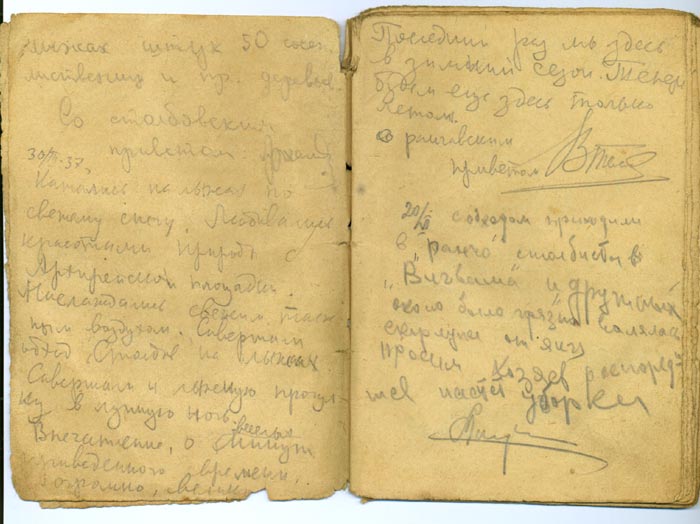 лыжах штук 50 сосен
лиственниц и пр. деревьев.
Со столбовским
приветом
30/III-37.
Катались на лыжах по
свежему снегу. Любовались
красотами природы
Архирейской площадки.
Наслаждались свежим таеж
ным воздухом. Совершали
обход Столбов на лыжах
Совершали и лыжную прогул
ку в лунную ночь.
веселых
Впечатление, о минут
проведенного времени,
огромно,
Последний раз мы здесь
в зимний сезон. Теперь
будем еще здесь только
летом.
С ранчавским
приветом
20/III с обходом приходили
в "ранчо" столбисты
"Вигвама" и дружных
около было грязно валялась
скорлупа от яиц
просим хозяев распоред-
уборки